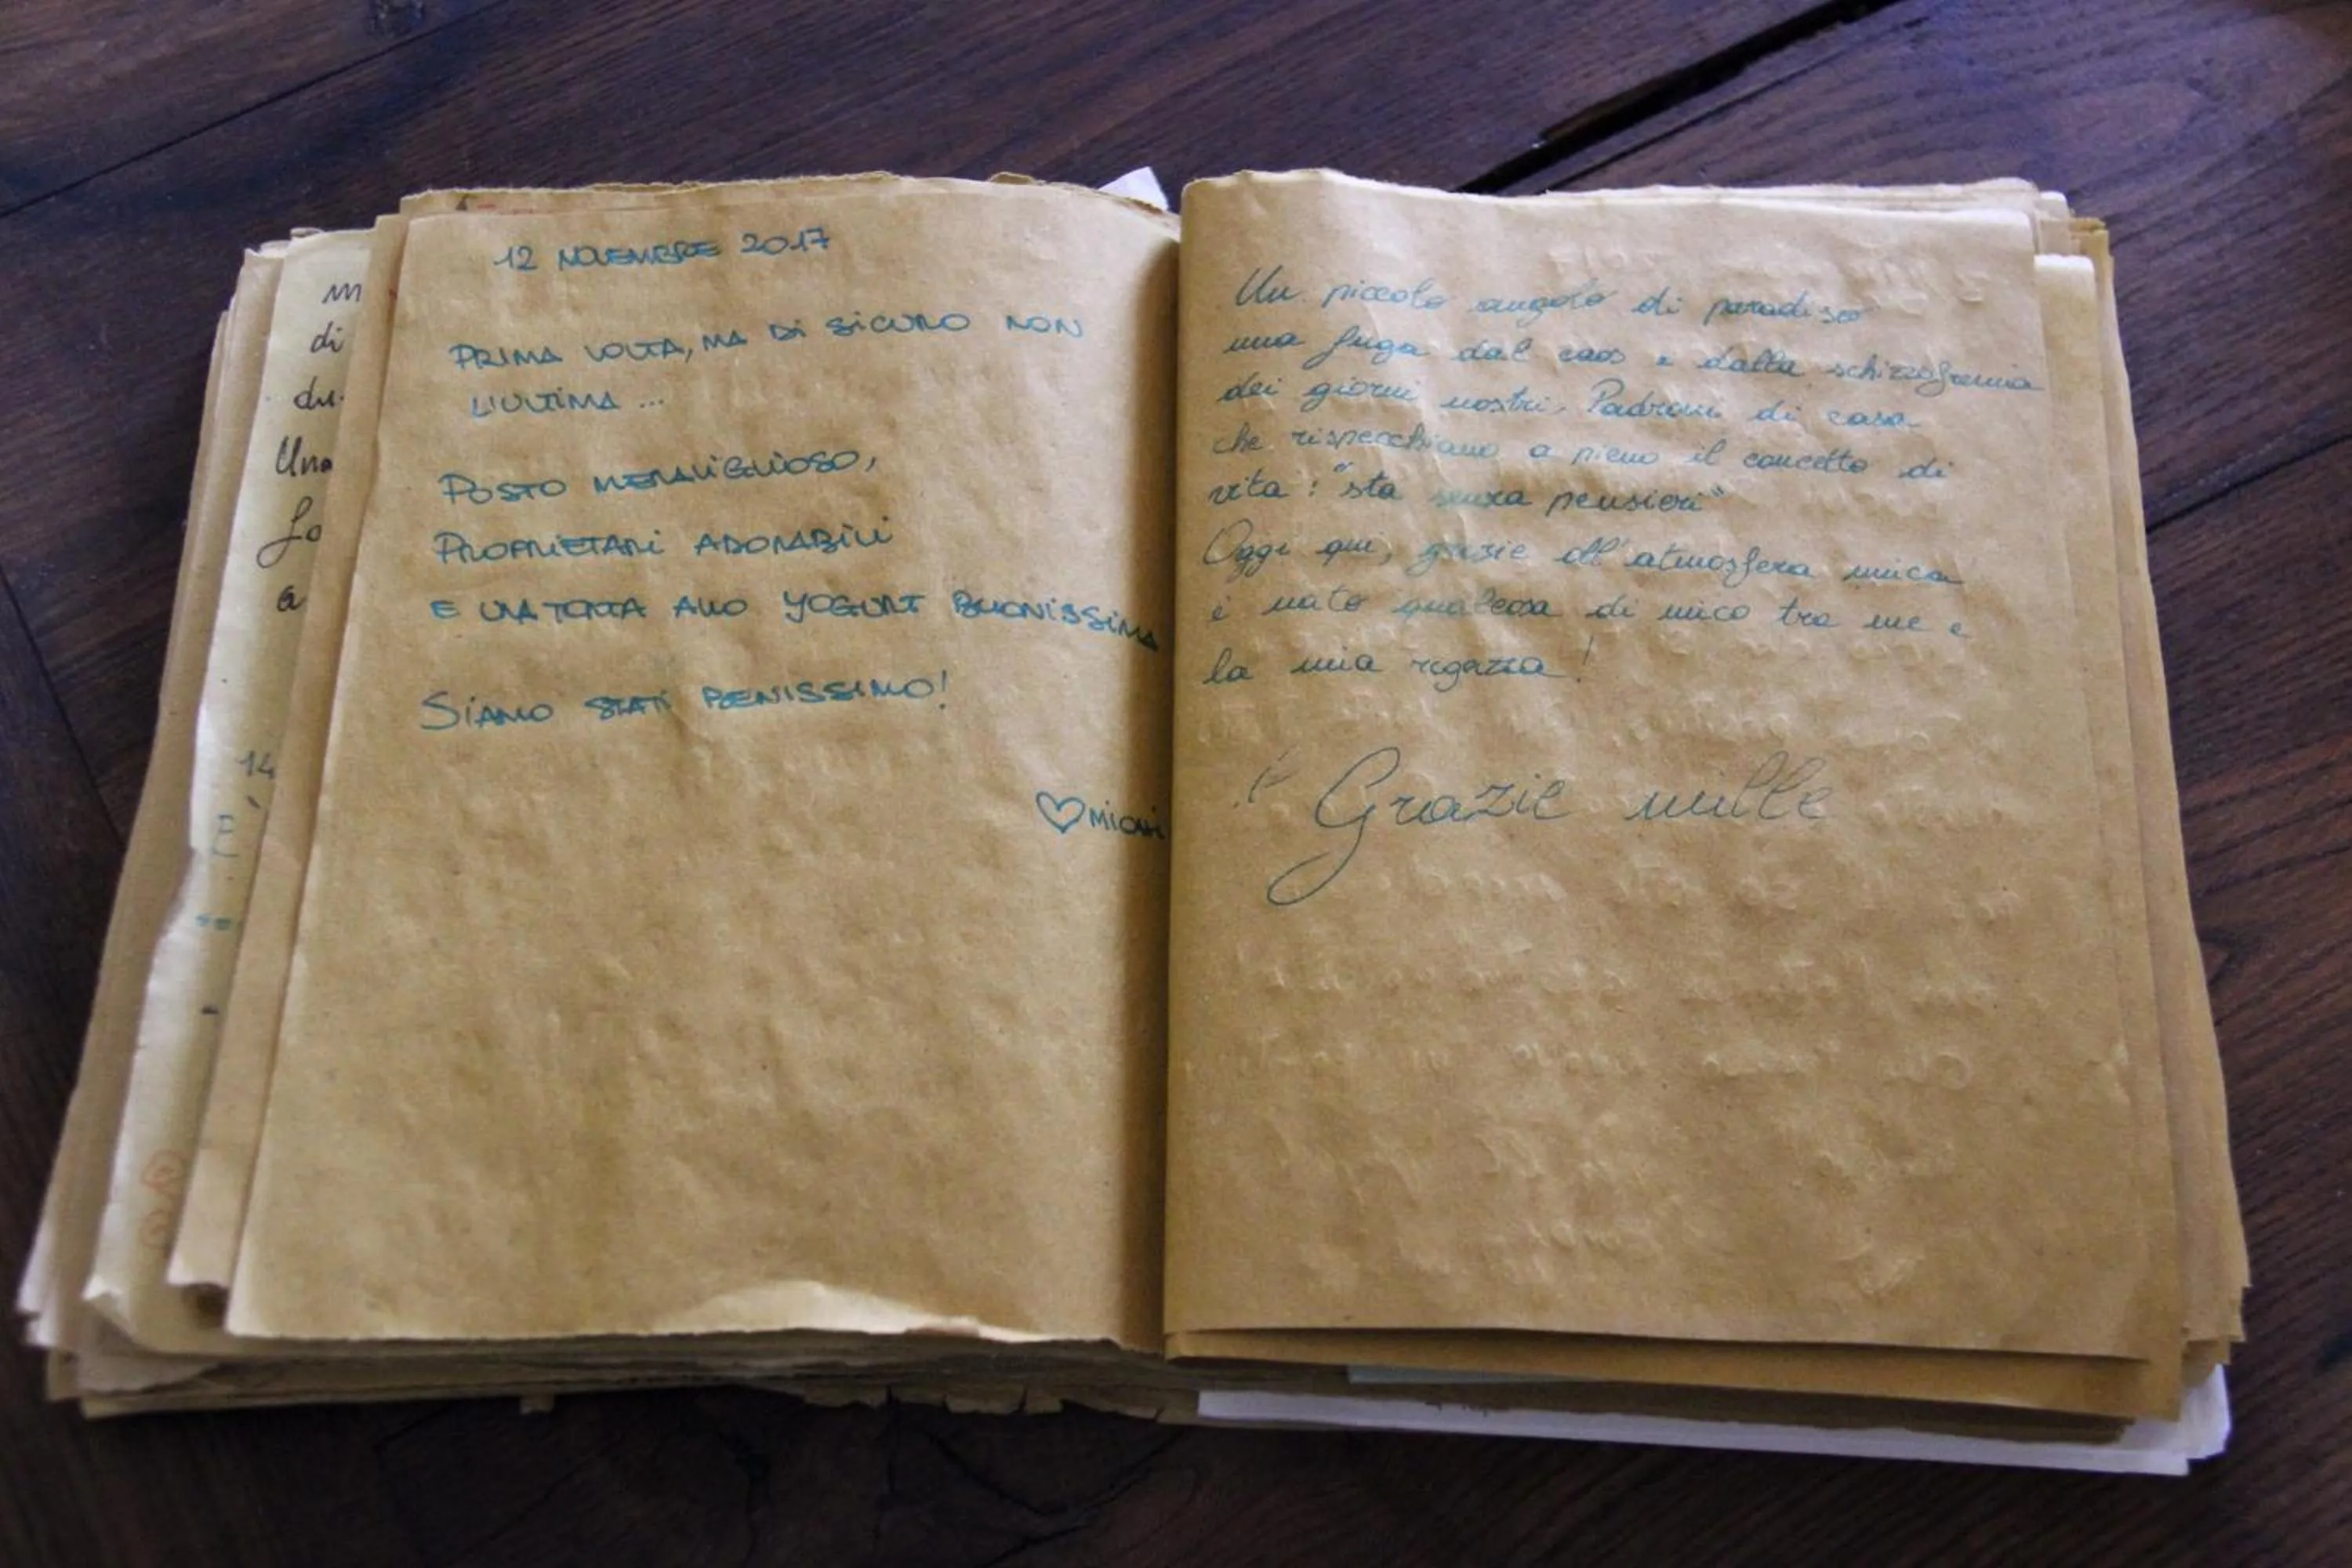 m
di
du
Una
fo
a
14
E
12 NOVEMBRE 2017
PRIMA VOLTA, MA DI SICURO NON
L'ULTIMA ...
POSTO MERAVIGLIOSO,
PROPRIETARI ADORABILI
E UNA TORTA ALLO YOGURT BUONISSIMA
SIAMO STATI BENISSIMO!
Un piccolo angolo di paradiso
una fuga dal caos e dalla schizzofrenia
dei giorni nostri. Padroni di casa
che rispecchiano a pieno il concetto di
vita: "sta senza pensieri"
Oggi qui, grazie all'atmosfera unica
è nato qualcosa di unico tra me e
la mia ragazza!
Grazie mille